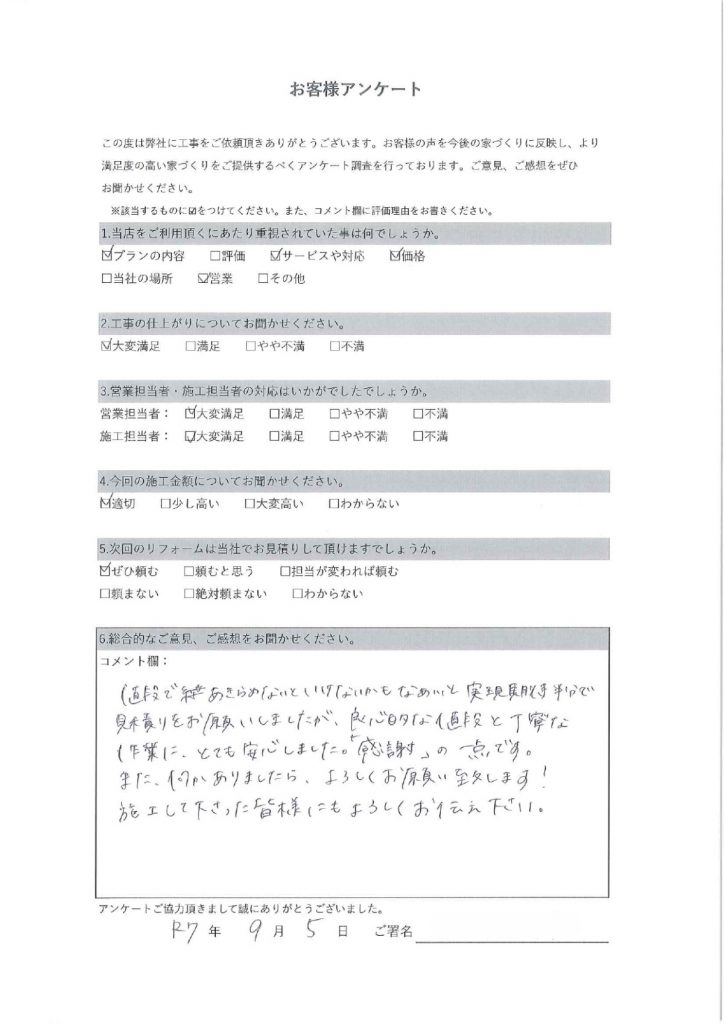 お客様アンケート
この度は弊社に工事をご依頼頂きありがとうございます。お客様の声を今後の家づくりに反映し、より
満足度の高い家づくりをご提供するべくアンケート調査を行っております。ご意見、ご感想をぜひ
お聞かせください。
※該当するものに☑をつけてください。また、コメント欄に評価理由をお書きください。
1.当店をご利用頂くにあたり重視されていた事は何でしょうか。
☑プランの内容 □評価 ☑サービスや対応 ☑価格
□当社の場所 ☑営業 □その他
2.工事の仕上がりについてお聞かせください。
☑大変満足 □満足 □やや不満 □不満
3.営業担当者・施工担当者の対応はいかがでしたでしょうか。
営業担当者： ☑大変満足 □満足 □やや不満 □不満
施工担当者： ☑大変満足 □満足 □やや不満 □不満
4.今回の施工金額についてお聞かせください。
☑適切 □少し高い □大変高い □わからない
5.次回のリフォームは当社でお見積りして頂けますでしょうか。
☑ぜひ頼む □頼むと思う □担当が変われば頼む
□頼まない □絶対頼まない □わからない
6.総合的なご意見、ご感想をお聞かせください。
コメント欄：
値段で あきらめないといけないかも と 半分で
見積りをお願いしましたが、良心的な値段と丁寧な
作業に、とても安心しました。「感謝」の一点です。
また、何かありましたら、よろしくお願い致します！
施工して下さった皆様にもよろしくお伝え下さい。
アンケートご協力頂きまして誠にありがとうございました。
R7 年 9 月 5 日 ご署名